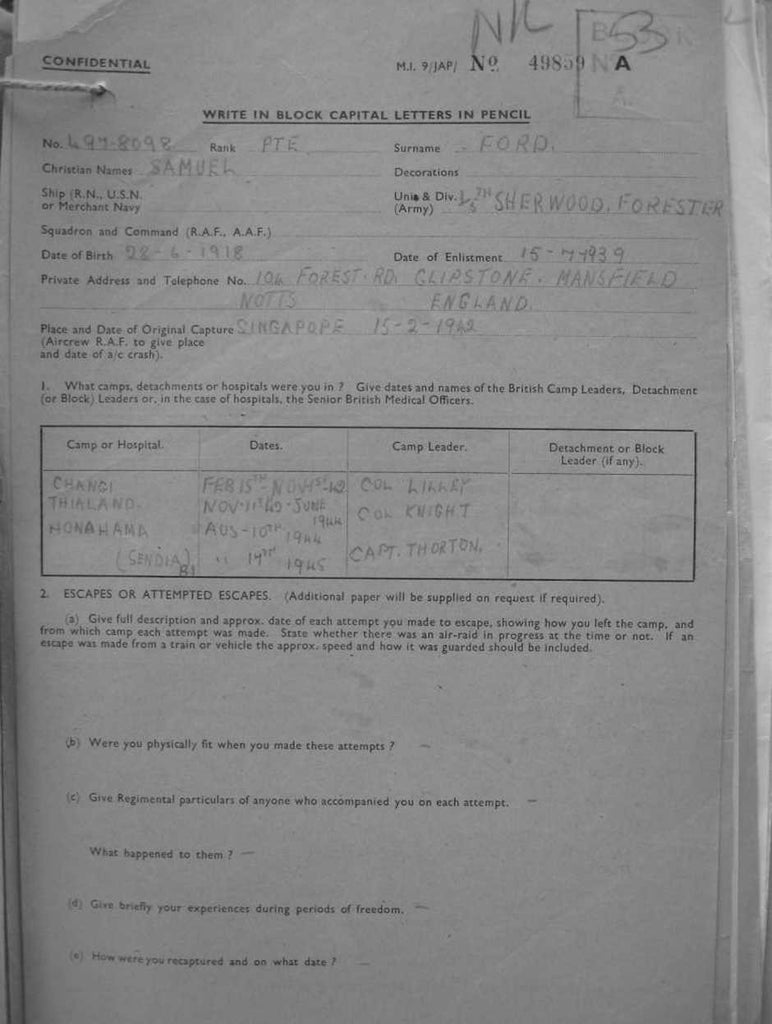 NIL 53
CONFIDENTIAL M.I. 9/JAP/ No. 49859 A
WRITE IN BLOCK CAPITAL LETTERS IN PENCIL
No. Rank PTE Surname FORD.
Christian Names SAMUEL Decorations
Ship (R.N., U.S.N. or Merchant Navy Unit & Div. (Army) SHERWOOD. FORESTER
Squadron and Command (R.A.F., A.A.F.)
Date of Birth 28-6-1918 Date of Enlistment 15-7-1939
Private Address and Telephone No. 106 FOREST. RD. CLIPSTONE. MANSFIELD
NOTTS ENGLAND.
Place and Date of Original Capture SINGAPOPE 15-2-1942
(Aircrew R.A.F. to give place
and date of a/c crash).
1. What camps, detachments or hospitals were you in ? Give dates and names of the British Camp Leaders, Detachment
(or Block) Leaders or, in the case of hospitals, the Senior British Medical Officers.
Camp or Hospital. Dates. Camp Leader. Detachment or Block
Leader (if any).
CHANGI FEB 15TH - NOV 1ST 42 COL LILLEY
THIALAND. NOV-11T42-JUNE 1944 COL KNIGHT
HONAHAMA AUS-10TH 1944
(SENDIA) B1 " 14TH 1945 CAPT. THORTON.
2. ESCAPES OR ATTEMPTED ESCAPES. (Additional paper will be supplied on request if required).
(a) Give full description and approx. date of each attempt you made to escape, showing how you left the camp, and
from which camp each attempt was made. State whether there was an air-raid in progress at the time or not. If an
escape was made from a train or vehicle the approx. speed and how it was guarded should be included.
(b) Were you physically fit when you made these attempts ? —
(c) Give Regimental particulars of anyone who accompanied you on each attempt. —
What happened to them ? —
(d) Give briefly your experiences during periods of freedom. —
(e) How were you recaptured and on what date ? —